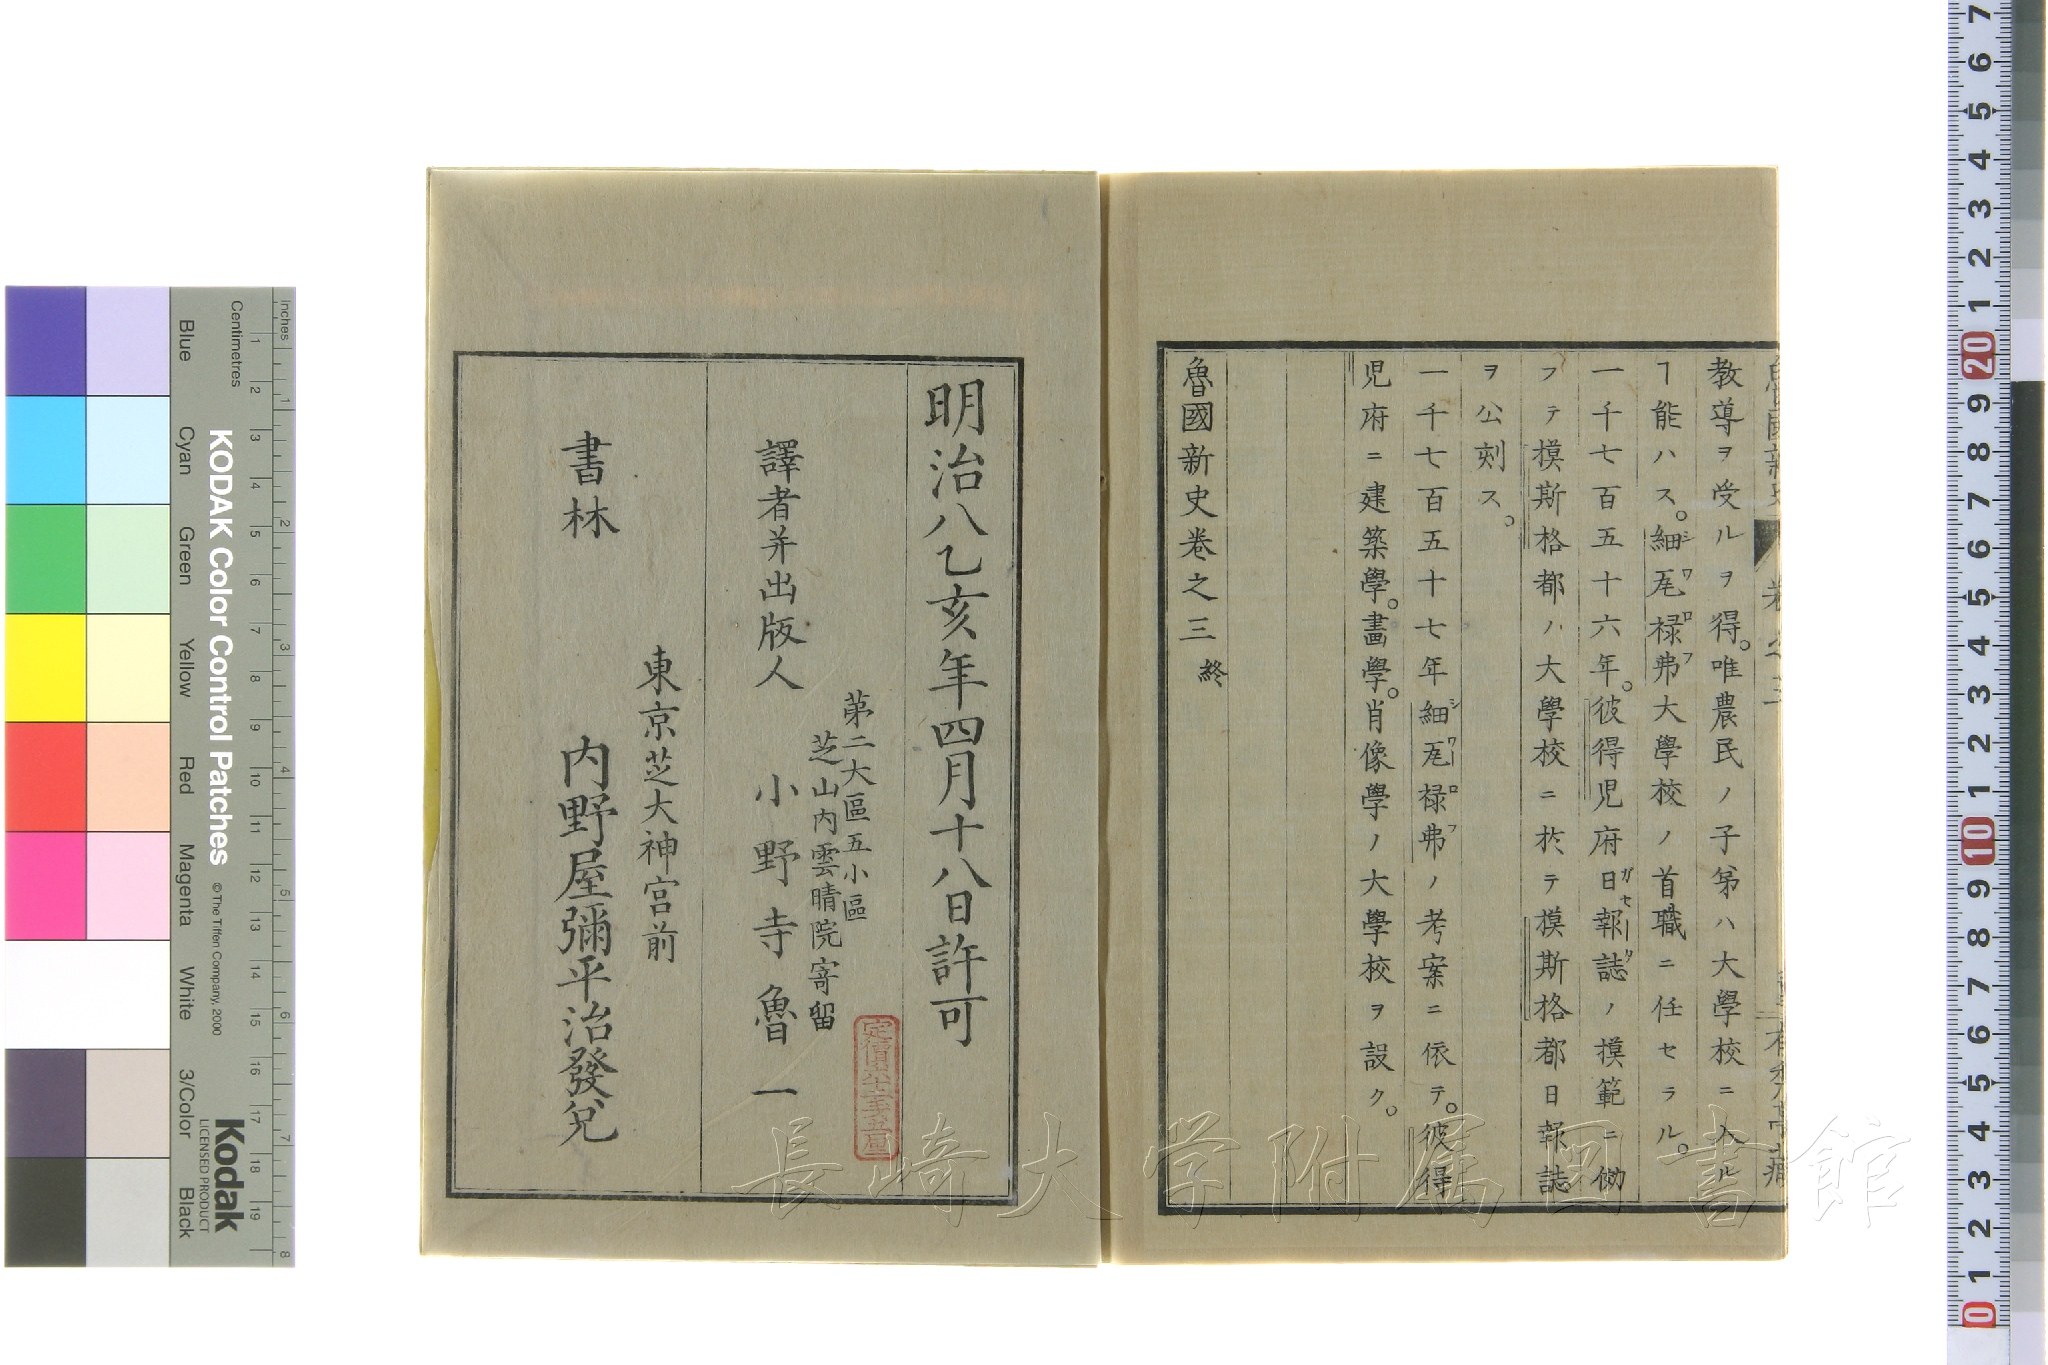 教導ヲ受ルヲ得。唯農民ノ子弟ハ大學校ニ入ル
ヿ能ハス。細瓦禄弗大學校ノ首職ニ任セラル。
一千七百五十六年。彼得児府日報誌ノ模範ニ倣
フテ模斯格都ノ大學校ニ於テ模斯格都日報誌
ヲ公刻ス。
一千七百五十七年細瓦禄弗ノ考案ニ依テ。彼得
児府ニ建築學。畵學。肖像學ノ大學校ヲ設ク。
魯國新史卷之三 終
明治八乙亥年四月十八日許可
第二大區五小區
芝山内雲晴院寄留
譯者并出版人 小野寺魯一
東京芝大神宮前
書林 内野屋彌平治發兌
長崎大学附属図書館
KODAK Color Control Patches
© The Tiffen Company, 2000
Kodak
LICENSED PRODUCT
Inches
Centimetres
Blue
Cyan
Green
Yellow
Red
Magenta
White
3/Color
Black